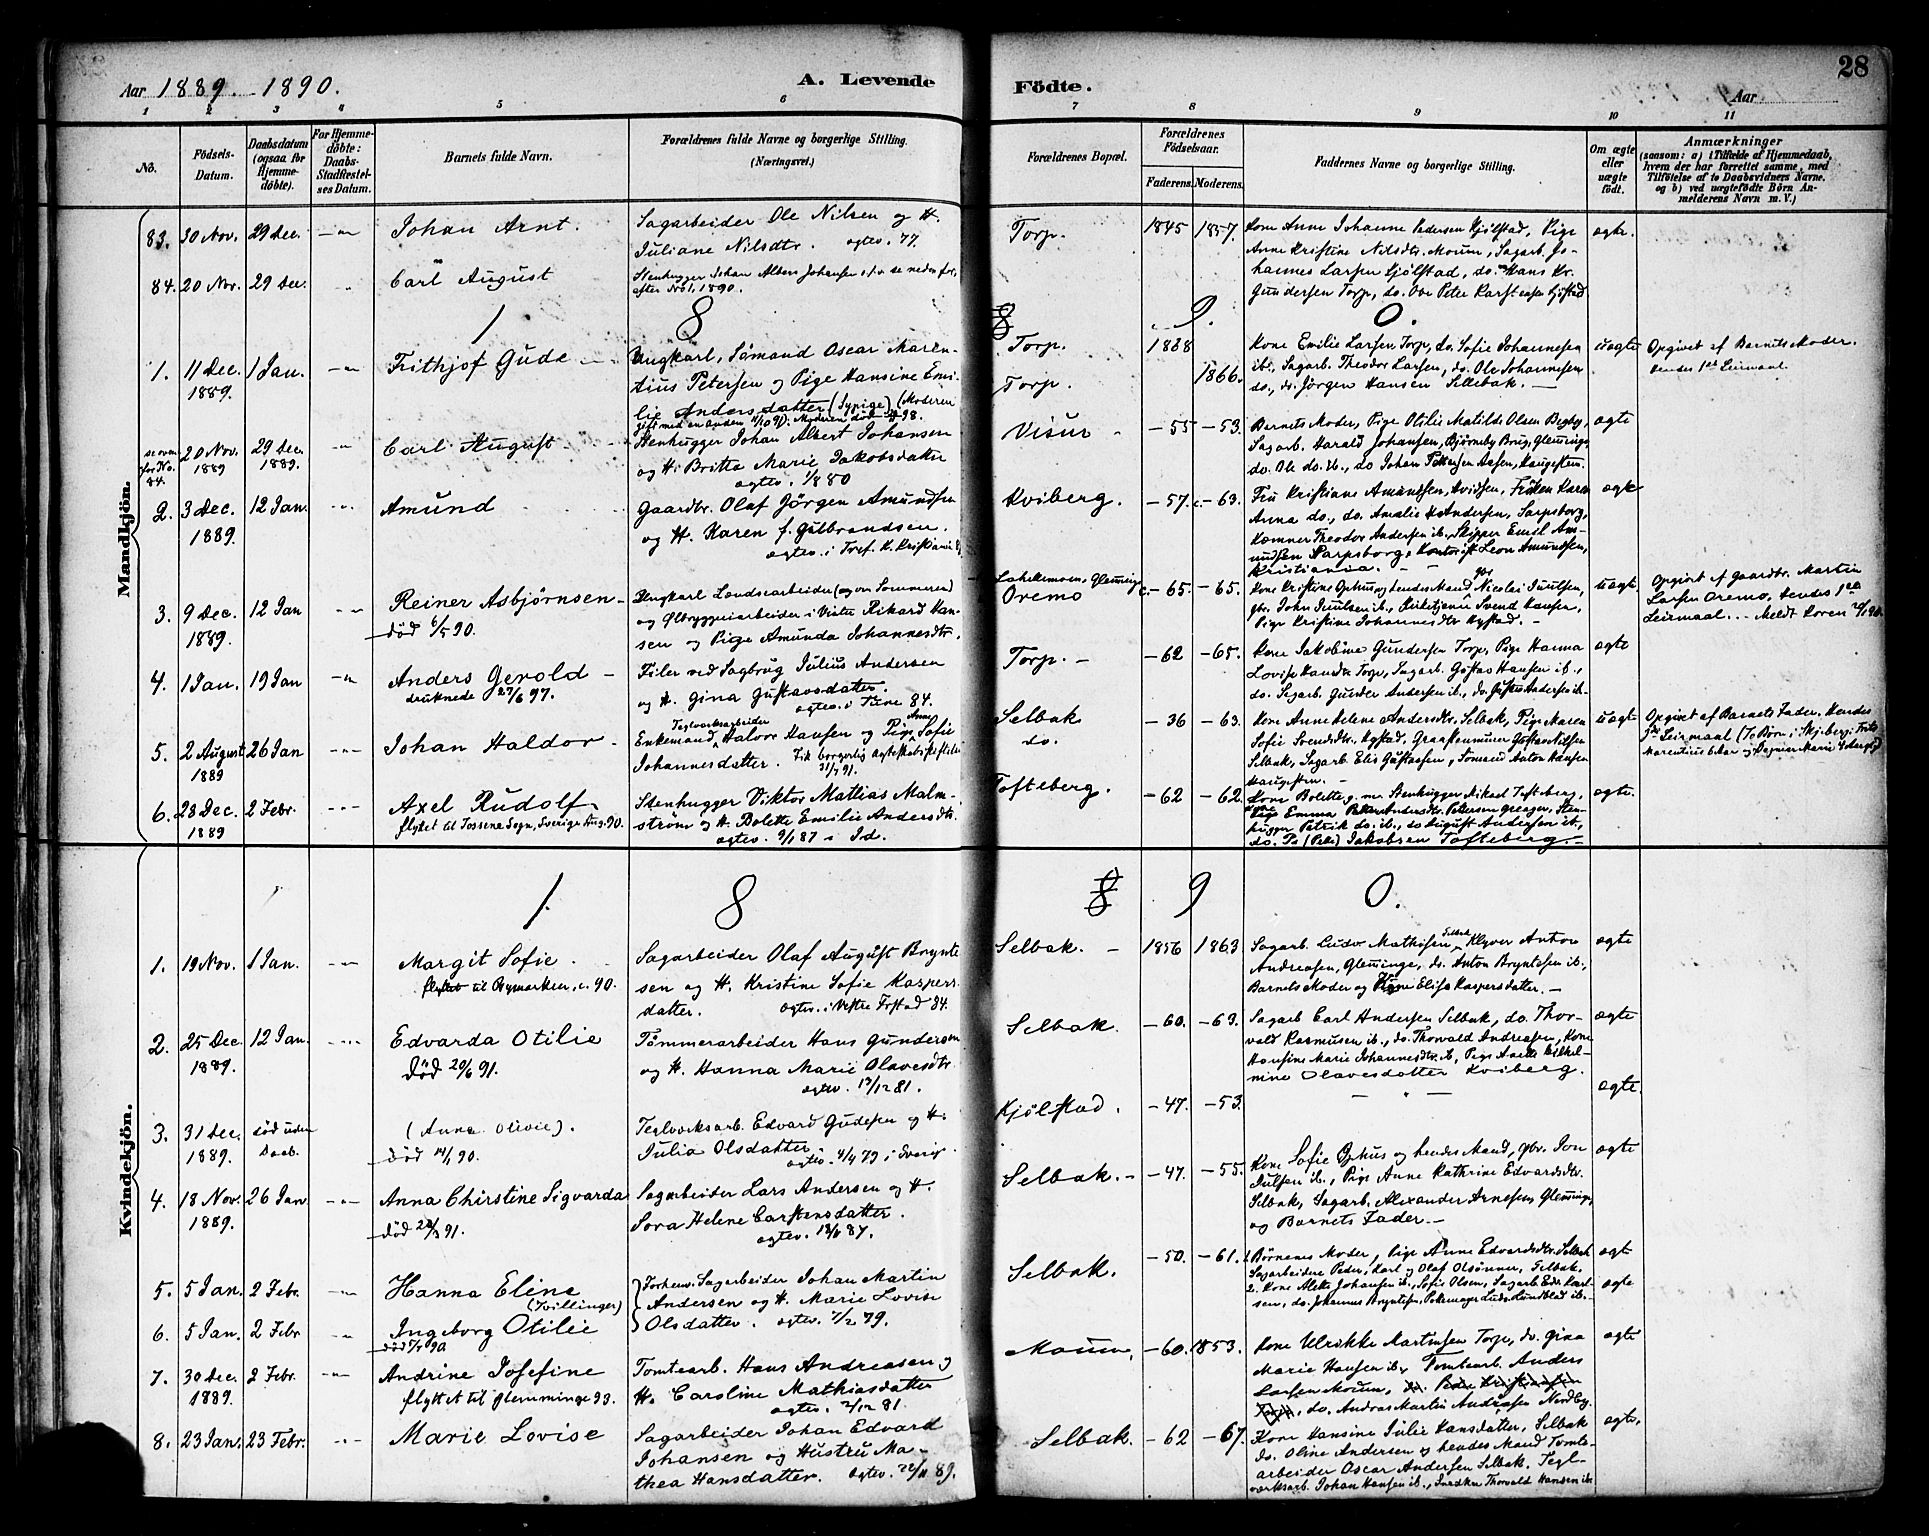 Aar 1889. 1890.
A. Levende Födte.
28
Aar
1 2 3 4 5 6 7 8 9 10 11
No.
Födsels-
Datum.
Daabsdatum
(ogsaa for
Hjemme-
döbte).
For Hjemme-
döbte:
Daabs-
Stadfæstel-
ses Datum.
Barnets fulde Navn.
Forældrenes fulde Navne og borgerlige Stilling.
(Næringsvei.)
Forældrenes Bopæl.
Forældrenes
Födselsaar.
Faderens. Moderens.
Faddernes Navne og borgerlige Stilling.
Om ægte
eller
uægte
födt.
Anmærkninger
(saasom: a) i Tilfælde af Hjemmedaab,
hvem der har forrettet samme, med
Tilföielse af to Daabsvidners Navne.
og b) ved uægtefödte Börn An-
melderens Navn m. V.)
Mandkjön.
83. 30 Nov. 29 Dec. Johan Arnt. Sagarbeider Ole Nilsen og H.
Juliane Nilsdtr. ægtev. 77.
Torp. 1845 1857. Kone Anne Johanne Pedersen Kjölstad, Pige ægte.
Anne Kristine Nilsdtr. Moum, Sagarb. Jo-
hannes Larsen Kjölstad, do. Hans Kr.
Gundersen Torp, do. Ole Peter Karstensen Kjölstad
84. 20 Nov. 29 Dec. Carl August Stenhugger Johan Albert Johansen se nedenfor,
efter No 1, 1890.
1 8 9. 0.
1. 11 Dec. 1 Jan. Frithjof Gude Ungkarl, Sömand Oscar Maren-
1889. tius Petersen og Pige Hansine Emi-
lie Andersdatter (Sypige) (Moderen
gift med en anden Moderen död 98.
Torp. 1868 Kone Emilie Larsen Torp, do. Sofie Johannesen uægte Opgivet af Barnets Moder.
Torp. 1866. ib., Sagarb. Theodor Larsen, do. Ole Johannesen Hendes 1ste Leirmaal.
do., do. Jörgen Hansen Sellebak.
se oven
for No.
84.
20 Nov. 29 Dec. Carl August Stenhugger Johan Albert Johansen
1889 1889. og H. Britta Marie Jakobsdatter
ægtev. 1/8 80
Visur - 55 - 53. Barnets Moder, Pige Otilie Matilde Olsen Begby, ægte
Sagarb. Harald Johansen, Björneby Brug, Glemminge,
do. Ole do. ib., do Johan Pettersen Aasen, Haugesten.
2. 3 Dec. 12 Jan. Amund Gaardbr. Olaf Jörgen Amundsen
1889. og H. Karen f. Gulbrandsen.
ægtev. i Tref. K. Kristiania
Kviberg. - 57. - 63. Fru Kristiane Amundsen, Hvidsen, Fröken Karen ægte
Anna do., do. Amalie Andersen, Sarpsborg,
Kæmner Theodor Andersen ib., Skipper Emil Am-
undsen Sarpsborg, Kontorist Leon Amundsen,
Kristiania.
3. 9 Dec. 12 Jan Reiner Asbjörnsen Ungkarl Landsearbeider (og om Sommeren)
1889. död 6/5 90. og Ölbryggeriarbeider i Vinter Rikard Han-
sen og Pige Amunda Johannesdtr.
Oremo - 65. - 65. Kone Kristine Ophus, hendes Mand Nicolai Juulsen, uægte Opgivet af Gaardbr. Martin
gbr. John Juulsen ib., Kirketjener Svend Hansen, Larsen Oremo, Hendes 1ste
Pige Kristine Johannesdtr Nystad. Leirmaal. - Meldt Loren
4. 1 Jan. 19 Jan Anders Gerold Filer ved Sagbrug Julius Andersen
druknede 27/6 97. og H. Gina Gustavsdatter.
ægtev. i Tune 84.
Torp. - 62 - 65. Kone Jakobine Gundersen Torp, Pige Hanna ægte
Lovise Torp, Sagarb. Gustav Hansen ib.,
do. Sagarb. Gunder Andersen ib., do. Gustav Andersen ib.
5. 2 August 26 Jan Johan Haldor Teglverksarbeider Anne
1889 Enkemand, Halvor Hansen og Pige Sofie
Johannesdatter. Fik borgerlig
31/7 91.
Selbak - 36 - 63. Kone Anne Helene Andersdtr. Selbak, Pige Maren uægte Opgivet af Barnets Fader. Hendes
do. Sofie Svendsdtr. Nystad, Gustav Nilsen Leirmaal (To Börn i Skjeberg
Selbak, Sagarb. Elis Gustafsen, Sömand Anton Hansen
Haugesten.
6. 28 Dec. 2 Febr. Axel Rudolf. Stenhugger Viktor Mathias Malm-
1889 flyttet til Tossene Sogn, Sverige Aug. 90. ström og H. Bolette Emilie Andersdtr.
ægtev. 9/1 87 i Id.
Tofteberg. - 62 - 62. Kone Bolette, g. m. Stenhugger Mikael Tofteberg, ægte.
Emma Petersen Greaaker, Sten-
hugger Petrik do. ib., do August Andersen ib.,
do. Pe (Peter) Jakobsen Tofteberg.
Kvindekjön.
1. 8 9 0.
1. 19 Nov. 1 Jan. Margit Sofie. Sagarbeider Olaf August Brynte
flyttet til Rymarken, 90. sen og H. Kristine Sofie Kaspers
datter. ægtev. i Vestre Frstad 84.
Selbak. - 1856 1863 Sagarb. Ludv Mathisen Selbak, Klyver Anton ægte
Andreasen, Glemminge, do. Anton Bryntesen ib.,
Barnets Moder og Pige Elise Kaspersdatter.
2. 25 Dec. 12 Jan. Edvarda Otilie Tömmerarbeider Hans Gundersen
1889. Död 20/6 91. og H. Hanna Marie Olavesdtr
ægtev. 13/12 81.
Selbak. - 60. - 63. Sagarb Carl Andersen Selbak, do. Thor- ægte
vald Rasmusen ib., do. Thorvald Andreasen, Kone
Hansine Marie Johannesdtr. ib, Pige Anette Vilhel-
mine Olavesdatter Kviberg.
3. 31 Dec. död uden (Anne Olivie). Teglverksarb. Edvard Gudesen og H.
1889. Daab. död 14/1 90. Julia Olsdatter
ægtev. 4/4 79 i Sverig.
Kjölstad. - 47. - 53. ægte
4. 18 Nov. 26 Jan Anna Chirstine Sigvarda Sagarbeider Lars Andersen og H.
1889. död 29/3 91. Sora Helene Carstensdatter.
ægtev. 87.
Selbak. - - 47. - 55. Kone Sofie Ophus og hendes Mand, gbr. Jon ægte
Julsen ib., Pige Anne Kathrine Edvardsdtr.
Selbak, Sagarb. Alexander Arnesen, Glemminge
og Barnets Fader.
5. 5 Jan. 2 Febr. Hanna Eline Forhenv. Sagarbeider Johan Martin
(Tvillinger) Andersen og H. Marie Lovise
6. 5 Jan. 2 Febr Ingeborg Otilie Olsdatter. ægtev. 7/2 79.
Selbak. - 50. - 61. 1. Börnenes Moder, Pige Anne Edvardsdtr. Selbak ægte
Sagarbeidere Peder, Karl og Olaf Olsönner, Selbak.
2. Kone Alette Johansen ib., Sofie Olsen, Sagarb. Edv. Karl- ægte
sen, do. Johannes Bryntesen, Pakmager Ludv. Lundblad ib.
7. 30 Dec. 2 Febr. Andrine Josefine Tomtearb. Hans Andreasen og
1889. flyttet til Glemminge 93. H. Caroline Mathiasdatter
ægtev. 2/12 81.
Moum. - 60. 1853. Kone Ulrikke Martinsen Torp, do. Gina ægte
Marie Hansen ib., Tomtearb. Anders
Larsen Moum, do. Peder Kristiansen
Torp, do. Andreas Martin Andreasen Nordby.
8. 23 Jan. 23 Febr. Marie Lovise Sagarbeider Johan Edvard
Johansen og Hustru Ma-
thea Hansdatter. ægtev. 22/11 89.
Selbak. - 62 - 67. Kone Hansine Julie Hansdatter, Selbak ægte.
do. Oline Andersen og hendes Mand Tomte-
arbeider Oscar Andersen Selbak. Tegl-
værksarb. Johan Hansen ib., Snedker Thorvald Hansen ib.